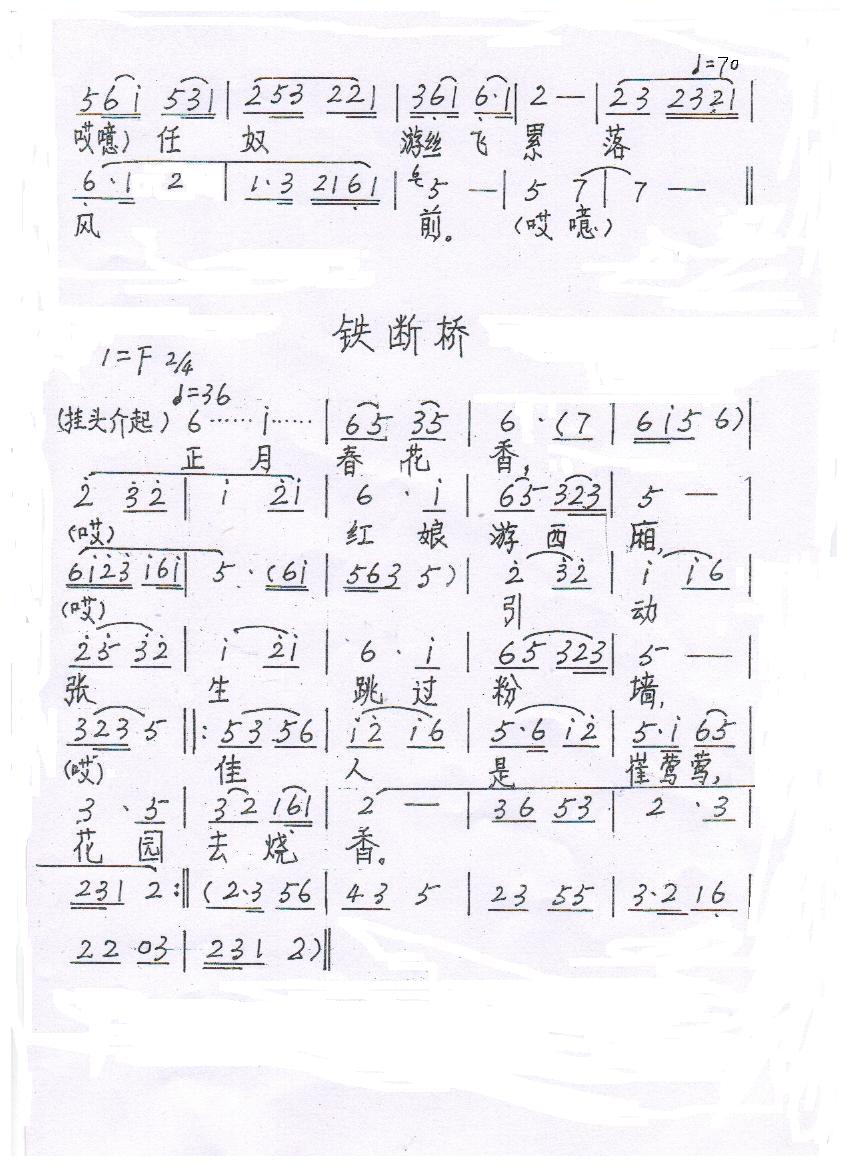 ♩=70
5 6 i 5 3 1 | 2 5 3 2 2 1 | 3 6 1 6 · 1 | 2 — | 2 3 2 3 2 1 |
哎噫) 任 奴 游丝 飞 累 落
6 · 1 2 | 1 · 3 2 1 6 1 | 5 — | 5 7 | 7 — ‖
风 前。 (哎 噫)
铁断桥
1=F 2/4
♩=36
(挂头介起) 6 …… i …… | 6 5 3 5 | 6 · (7 | 6 i 5 6) |
正 月 春 花 香,
2̇ 3̇ 2̇ | i 2̇ i | 6 · i | 6 5 3 2 3 | 5 — |
(哎) 红 娘 游 西 厢,
6 i 2̇ 3̇ i 6 i | 5 · (6 i | 5 6 3 5) | 2̇ 3̇ 2̇ | i i 6 |
(哎) 引 动
2̇ 5̇ 3̇ 2̇ | i 2̇ i | 6 · i | 6 5 3 2 3 | 5 — |
张 生 跳 过 粉 墙,
3 2 3 5 ‖: 5 3 5 6 | i 2̇ i 6 | 5 · 6 i 2̇ | 5 · i 6 5 |
(哎) 佳 人 是 崔莺莺,
3 · 5 | 3 2 1 6 1 | 2 — | 3 6 5 3 | 2 · 3 |
花 园 去 烧 香。
2 3 1 2 :‖ (2 · 3 5 6 | 4 3 5 | 2 3 5 5 | 3 · 2 1 6 |
2 2 0 3 | 2 3 1 2) ‖